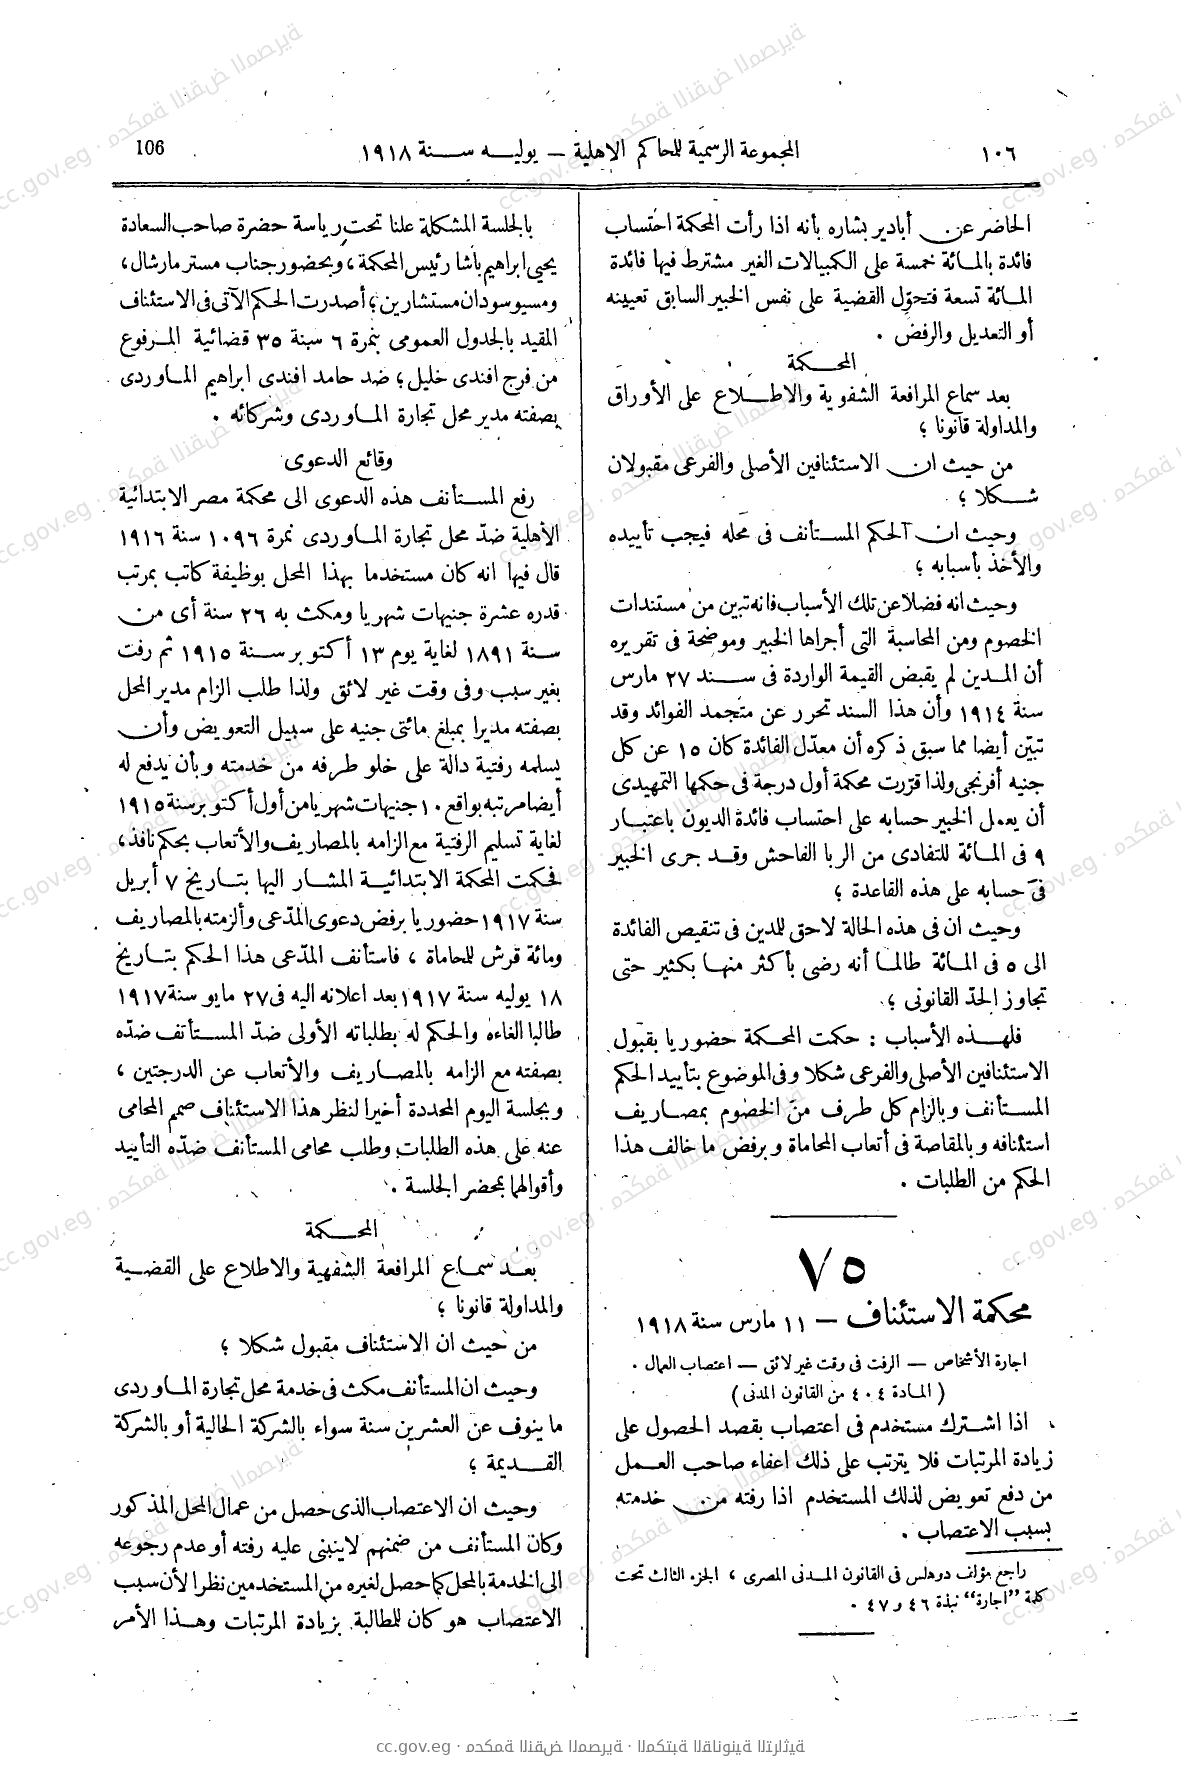 ١٠٦
المجموعة الرسمية للمحاكم الاهلية — يوليه سنة ١٩١٨
106
الحاضر عن أبادير بشاره بأنه اذا رأت المحكمة احتساب
فائدة بالمائة خمسة على الكمبيالات الغير مشترط فيها فائدة
المائة تسعة فتحوّل القضية على نفس الخبير السابق تعيينه
أو التعديل والرفض .
المحكمة
بعد سماع المرافعة الشفوية والاطلاع على الأوراق
والمداولة قانونا ؛
من حيث ان الاستئنافين الأصلى والفرعى مقبولان
شكلا ؛
وحيث ان الحكم المستأنف فى محله فيجب تأييده
والأخذ بأسبابه ؛
وحيث انه فضلا عن تلك الأسباب فانه تبين من مستندات
الخصوم ومن المحاسبة التى أجراها الخبير وموضحة فى تقريره
أن المدين لم يقبض القيمة الواردة فى سند ٢٧ مارس
سنة ١٩١٤ وأن هذا السند تحرر عن متجمد الفوائد وقد
تبيّن أيضا مما سبق ذكره أن معدّل الفائدة كان ١٥ عن كل
جنيه أفرنجى ولذا قرّرت محكمة أول درجة فى حكمها التمهيدى
أن يعمل الخبير حسابه على احتساب فائدة الديون باعتبار
٩ فى المائة للتفادى من الربا الفاحش وقد جرى الخبير
فى حسابه على هذه القاعدة ؛
وحيث ان فى هذه الحالة لاحق للدين فى تنقيص الفائدة
الى ٥ فى المائة طالما أنه رضى بأكثر منها بكثير حتى
تجاوز الحدّ القانونى ؛
فلهذه الأسباب : حكمت المحكمة حضوريا بقبول
الاستئنافين الأصلى والفرعى شكلا وفى الموضوع بتأييد الحكم
المستأنف وبالزام كل طرف من الخصوم بمصاريف
استئنافه وبالمقاصة فى أتعاب المحاماة وبرفض ما خالف هذا
الحكم من الطلبات .
٧٥
محكمة الاستئناف — ١١ مارس سنة ١٩١٨
اجارة الأشخاص — الرفت فى وقت غير لائق — اعتصاب العمال .
( المادة ٤٠٤ من القانون المدنى )
اذا اشترك مستخدم فى اعتصاب بقصد الحصول على
زيادة المرتبات فلا يترتب على ذلك اعفاء صاحب العمل
من دفع تعويض لذلك المستخدم اذا رفته من خدمته
بسبب الاعتصاب .
راجع مؤلف دوهلس فى القانون المدنى المصرى ، الجزء الثالث تحت
كلمة "اجارة" نبذة ٤٦ و ٤٧ .
بالجلسة المشكلة علنا تحت رياسة حضرة صاحب السعادة
يحيى ابراهيم باشا رئيس المحكمة ، وبحضور جناب مستر مارشال ،
ومسيو سودان مستشارين ؛ أصدرت الحكم الآتى فى الاستئناف
المقيد بالجدول العمومى بنمرة ٦ سنة ٣٥ قضائية المرفوع
من فرج افندى خليل ؛ ضد حامد افندى ابراهيم الماوردى
بصفته مدير محل تجارة الماوردى وشركائه .
وقائع الدعوى
رفع المستأنف هذه الدعوى الى محكمة مصر الابتدائية
الأهلية ضدّ محل تجارة الماوردى نمرة ١٠٩٦ سنة ١٩١٦
قال فيها انه كان مستخدما بهذا المحل بوظيفة كاتب بمرتب
قدره عشرة جنيهات شهريا ومكث به ٢٦ سنة أى من
سنة ١٨٩١ لغاية يوم ١٣ أكتوبر سنة ١٩١٥ ثم رفت
بغير سبب وفى وقت غير لائق ولذا طلب الزام مدير المحل
بصفته مديرا بمبلغ مائتى جنيه على سبيل التعويض وأن
يسلمه رفتية دالة على خلو طرفه من خدمته وبأن يدفع له
أيضا مرتبه بواقع ١٠ جنيهات شهريا من أول أكتوبر سنة ١٩١٥
لغاية تسليم الرفتية مع الزامه بالمصاريف والأتعاب بحكم نافذ ،
فحكمت المحكمة الابتدائية المشار اليها بتاريخ ٧ أبريل
سنة ١٩١٧ حضوريا برفض دعوى المدّعى وألزمته بالمصاريف
ومائة قرش للمحاماة ، فاستأنف المدّعى هذا الحكم بتاريخ
١٨ يوليه سنة ١٩١٧ بعد اعلانه اليه فى ٢٧ مايو سنة ١٩١٧
طالبا الغاءه والحكم له بطلباته الأولى ضدّ المستأنف ضدّه
بصفته مع الزامه بالمصاريف والأتعاب عن الدرجتين ،
وبجلسة اليوم المحددة أخيرا لنظر هذا الاستئناف صمم المحامى
عنه على هذه الطلبات وطلب محامى المستأنف ضدّه التأييد
وأقوالهما بمحضر الجلسة .
المحكمة
بعد سماع المرافعة الشفهية والاطلاع على القضية
والمداولة قانونا ؛
من حيث ان الاستئناف مقبول شكلا ؛
وحيث ان المستأنف مكث فى خدمة محل تجارة الماوردى
ما ينوف عن العشرين سنة سواء بالشركة الحالية أو بالشركة
القديمة ؛
وحيث ان الاعتصاب الذى حصل من عمال المحل المذكور
وكان المستأنف من ضمنهم لاينبنى عليه رفته أو عدم رجوعه
الى الخدمة بالمحل كما حصل لغيره من المستخدمين نظرا لأن سبب
الاعتصاب هو كان للمطالبة بزيادة المرتبات وهذا الأمر
cc.gov.eg · محكمة النقض المصرية · المكتبة القانونية التراثية